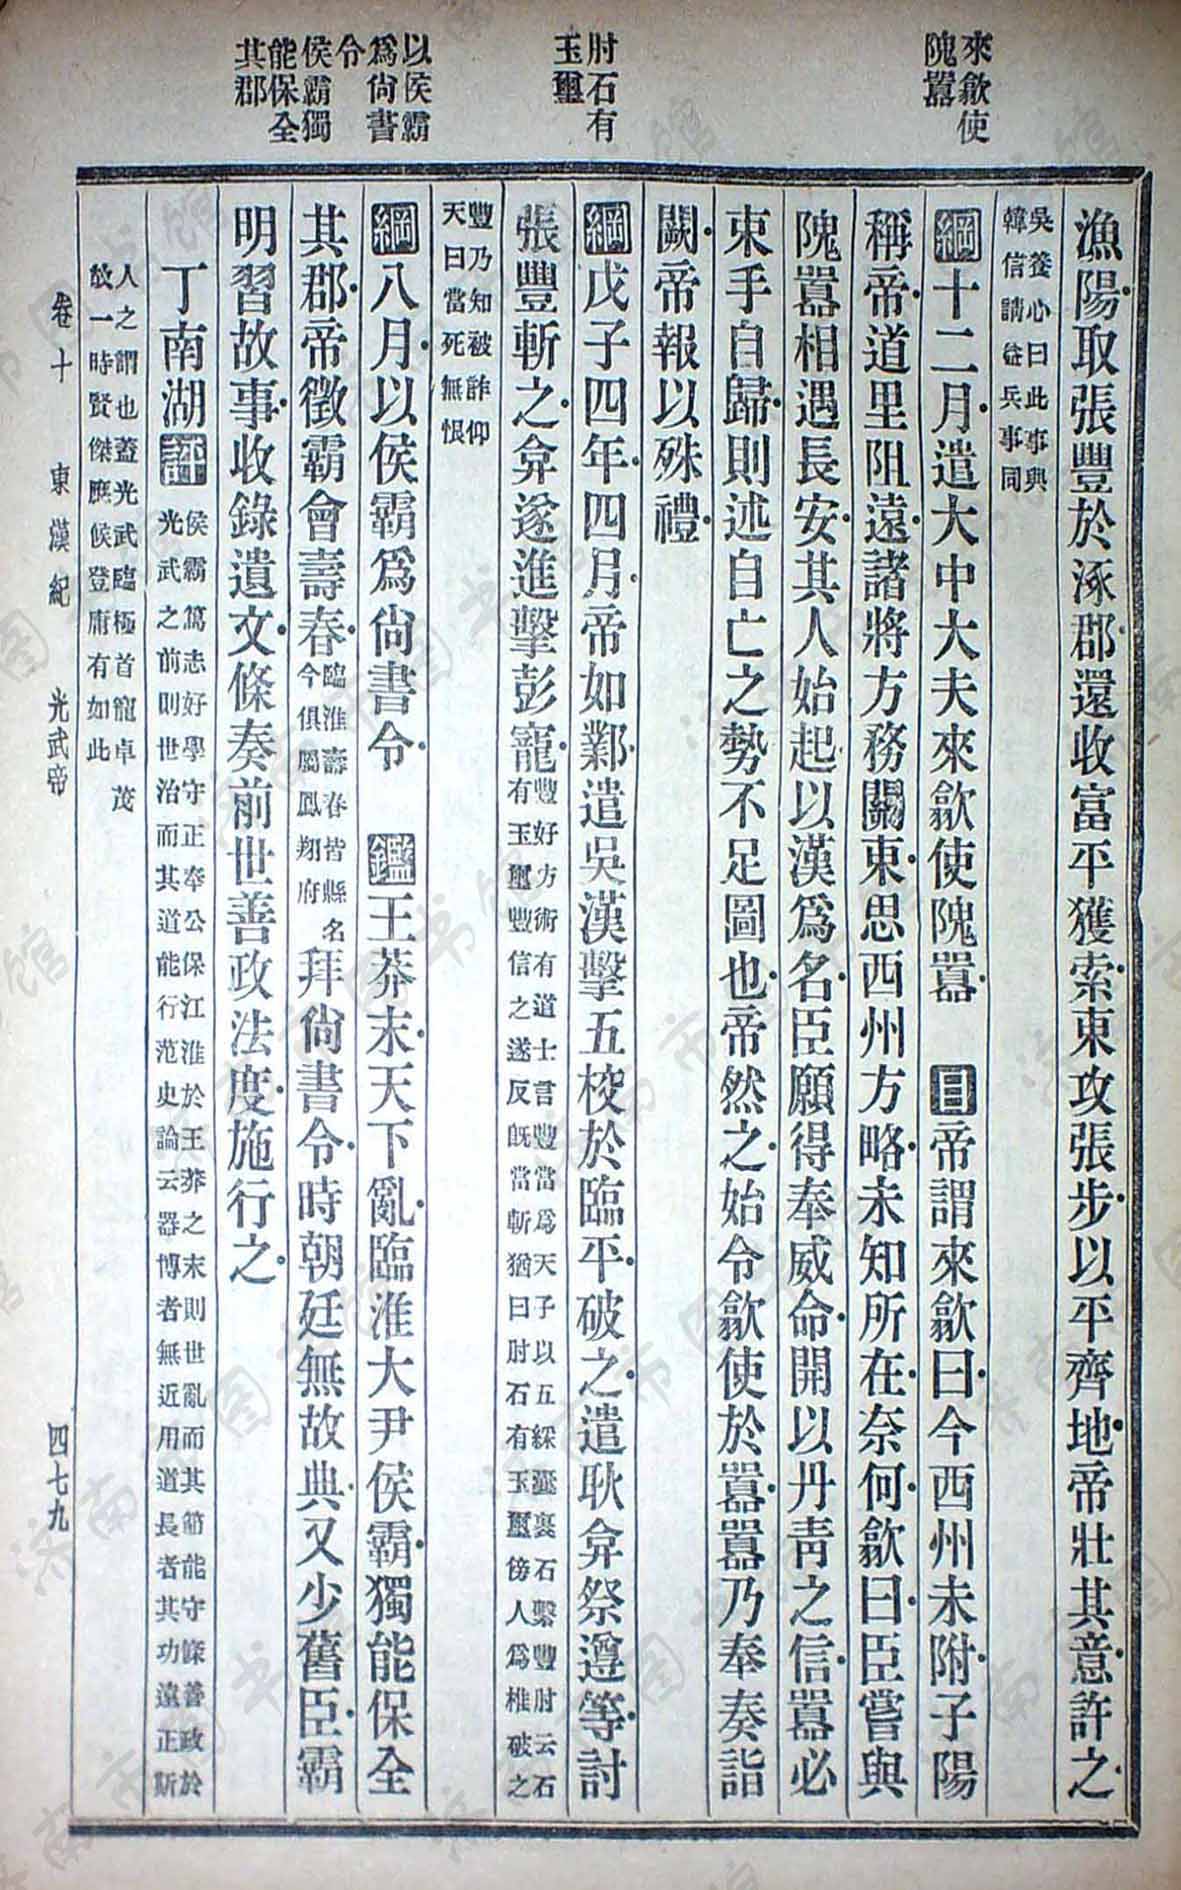 來歙使
隗囂
肘石有
玉璽
以侯霸
爲尙書
令
侯霸獨
能保全
其郡
漁陽取張豐於涿郡還收富平獲索東攻張步以平齊地帝壯其意許之
吳養心曰此事與
韓信請益兵事同
綱十二月遣大中大夫來歙使隗囂　目帝謂來歙曰今西州未附子陽
稱帝道里阻遠諸將方務關東思西州方略未知所在奈何歙曰臣嘗與
隗囂相遇長安其人始起以漢爲名臣願得奉威命開以丹靑之信囂必
束手自歸則述自亡之勢不足圖也帝然之始令歙使於囂囂乃奉奏詣
闕帝報以殊禮
綱戊子四年四月帝如鄴遣吳漢擊五校於臨平破之遣耿弇祭遵等討
張豐斬之弇遂進擊彭寵
豐好方術有道士言豐當爲天子以五綵囊裹石繫豐肘云石
有玉璽豐信之遂反旣當斬猶曰肘石有玉璽傍人爲椎破之
豐乃知被詐仰
天曰當死無恨
綱八月以侯霸爲尙書令　鑑王莽末天下亂臨淮大尹侯霸獨能保全
其郡帝徵霸會壽春
臨淮壽春皆縣名
今俱屬鳳翔府
拜尙書令時朝廷無故典又少舊臣霸
明習故事收錄遺文條奏前世善政法度施行之
丁南湖評
侯霸篤志好學守正奉公保江淮於王莽之末則世亂而其節能守條善政於
光武之前則世治而其道能行范史論云器博者無近用道長者其功遠正斯
人之謂也蓋光武臨極首寵卓茂
故一時賢傑應候登庸有如此
卷十　東漢紀　光武帝　四七九